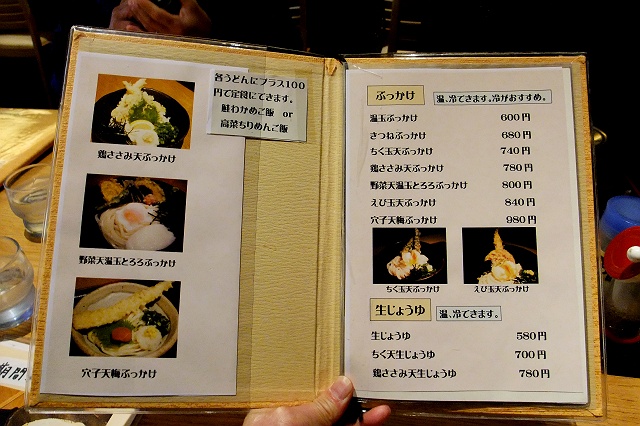 各うどんにプラス100
円で定食にできます。
鮭わかめご飯 or
高菜ちりめんご飯
鶏ささみ天ぶっかけ
野菜天温玉とろろぶっかけ
穴子天梅ぶっかけ
ぶっかけ 温、冷できます。冷がおすすめ。
温玉ぶっかけ 600円
きつねぶっかけ 680円
ちく玉天ぶっかけ 740円
鶏ささみ天ぶっかけ 780円
野菜天温玉とろろぶっかけ 800円
えび玉天ぶっかけ 840円
穴子天梅ぶっかけ 980円
ちく玉天ぶっかけ えび玉天ぶっかけ
生じょうゆ 温、冷できます。
生じょうゆ 580円
ちく天生じょうゆ 700円
鶏ささみ天生じょうゆ 780円